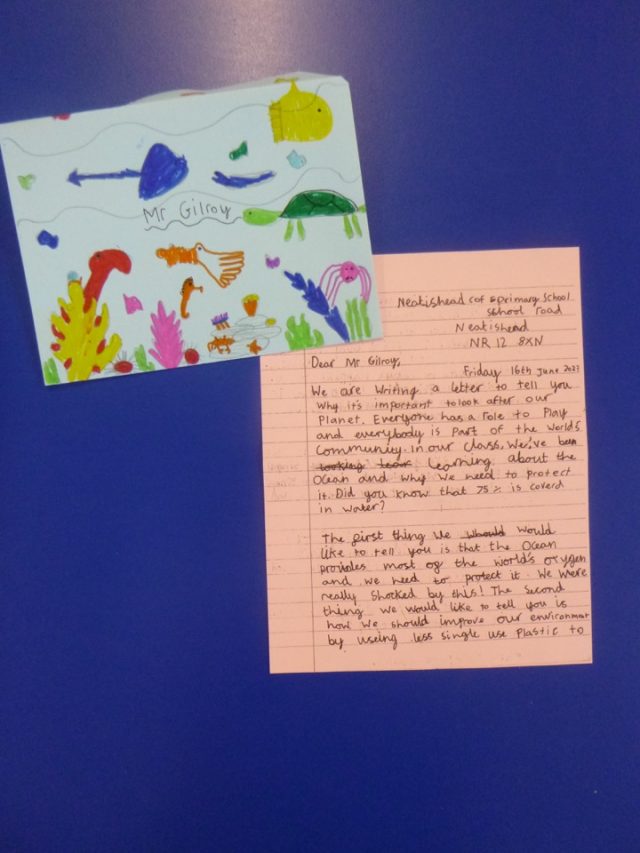 Mr Gilroy
Neatishead cof e primary School
School road
Neatishead
NR12 8XN
Dear Mr Gilroy,
Friday 16th June 2023
We are writing a letter to tell you
why it's important to look after our
Planet. Everyone has a role to Play
and everybody is part of the world's
community. In our class, We've been
looking learning about the
Ocean and why we need to protect
it. Did you know that 75% is coverd
in water?
The first thing we would
like to tell you is that the Ocean
provides most of the world's oxygen
and we need to protect it. We were
really shocked by this! The second
thing we would like to tell you is
how we should improve our environment
by useing less single use Plastic to